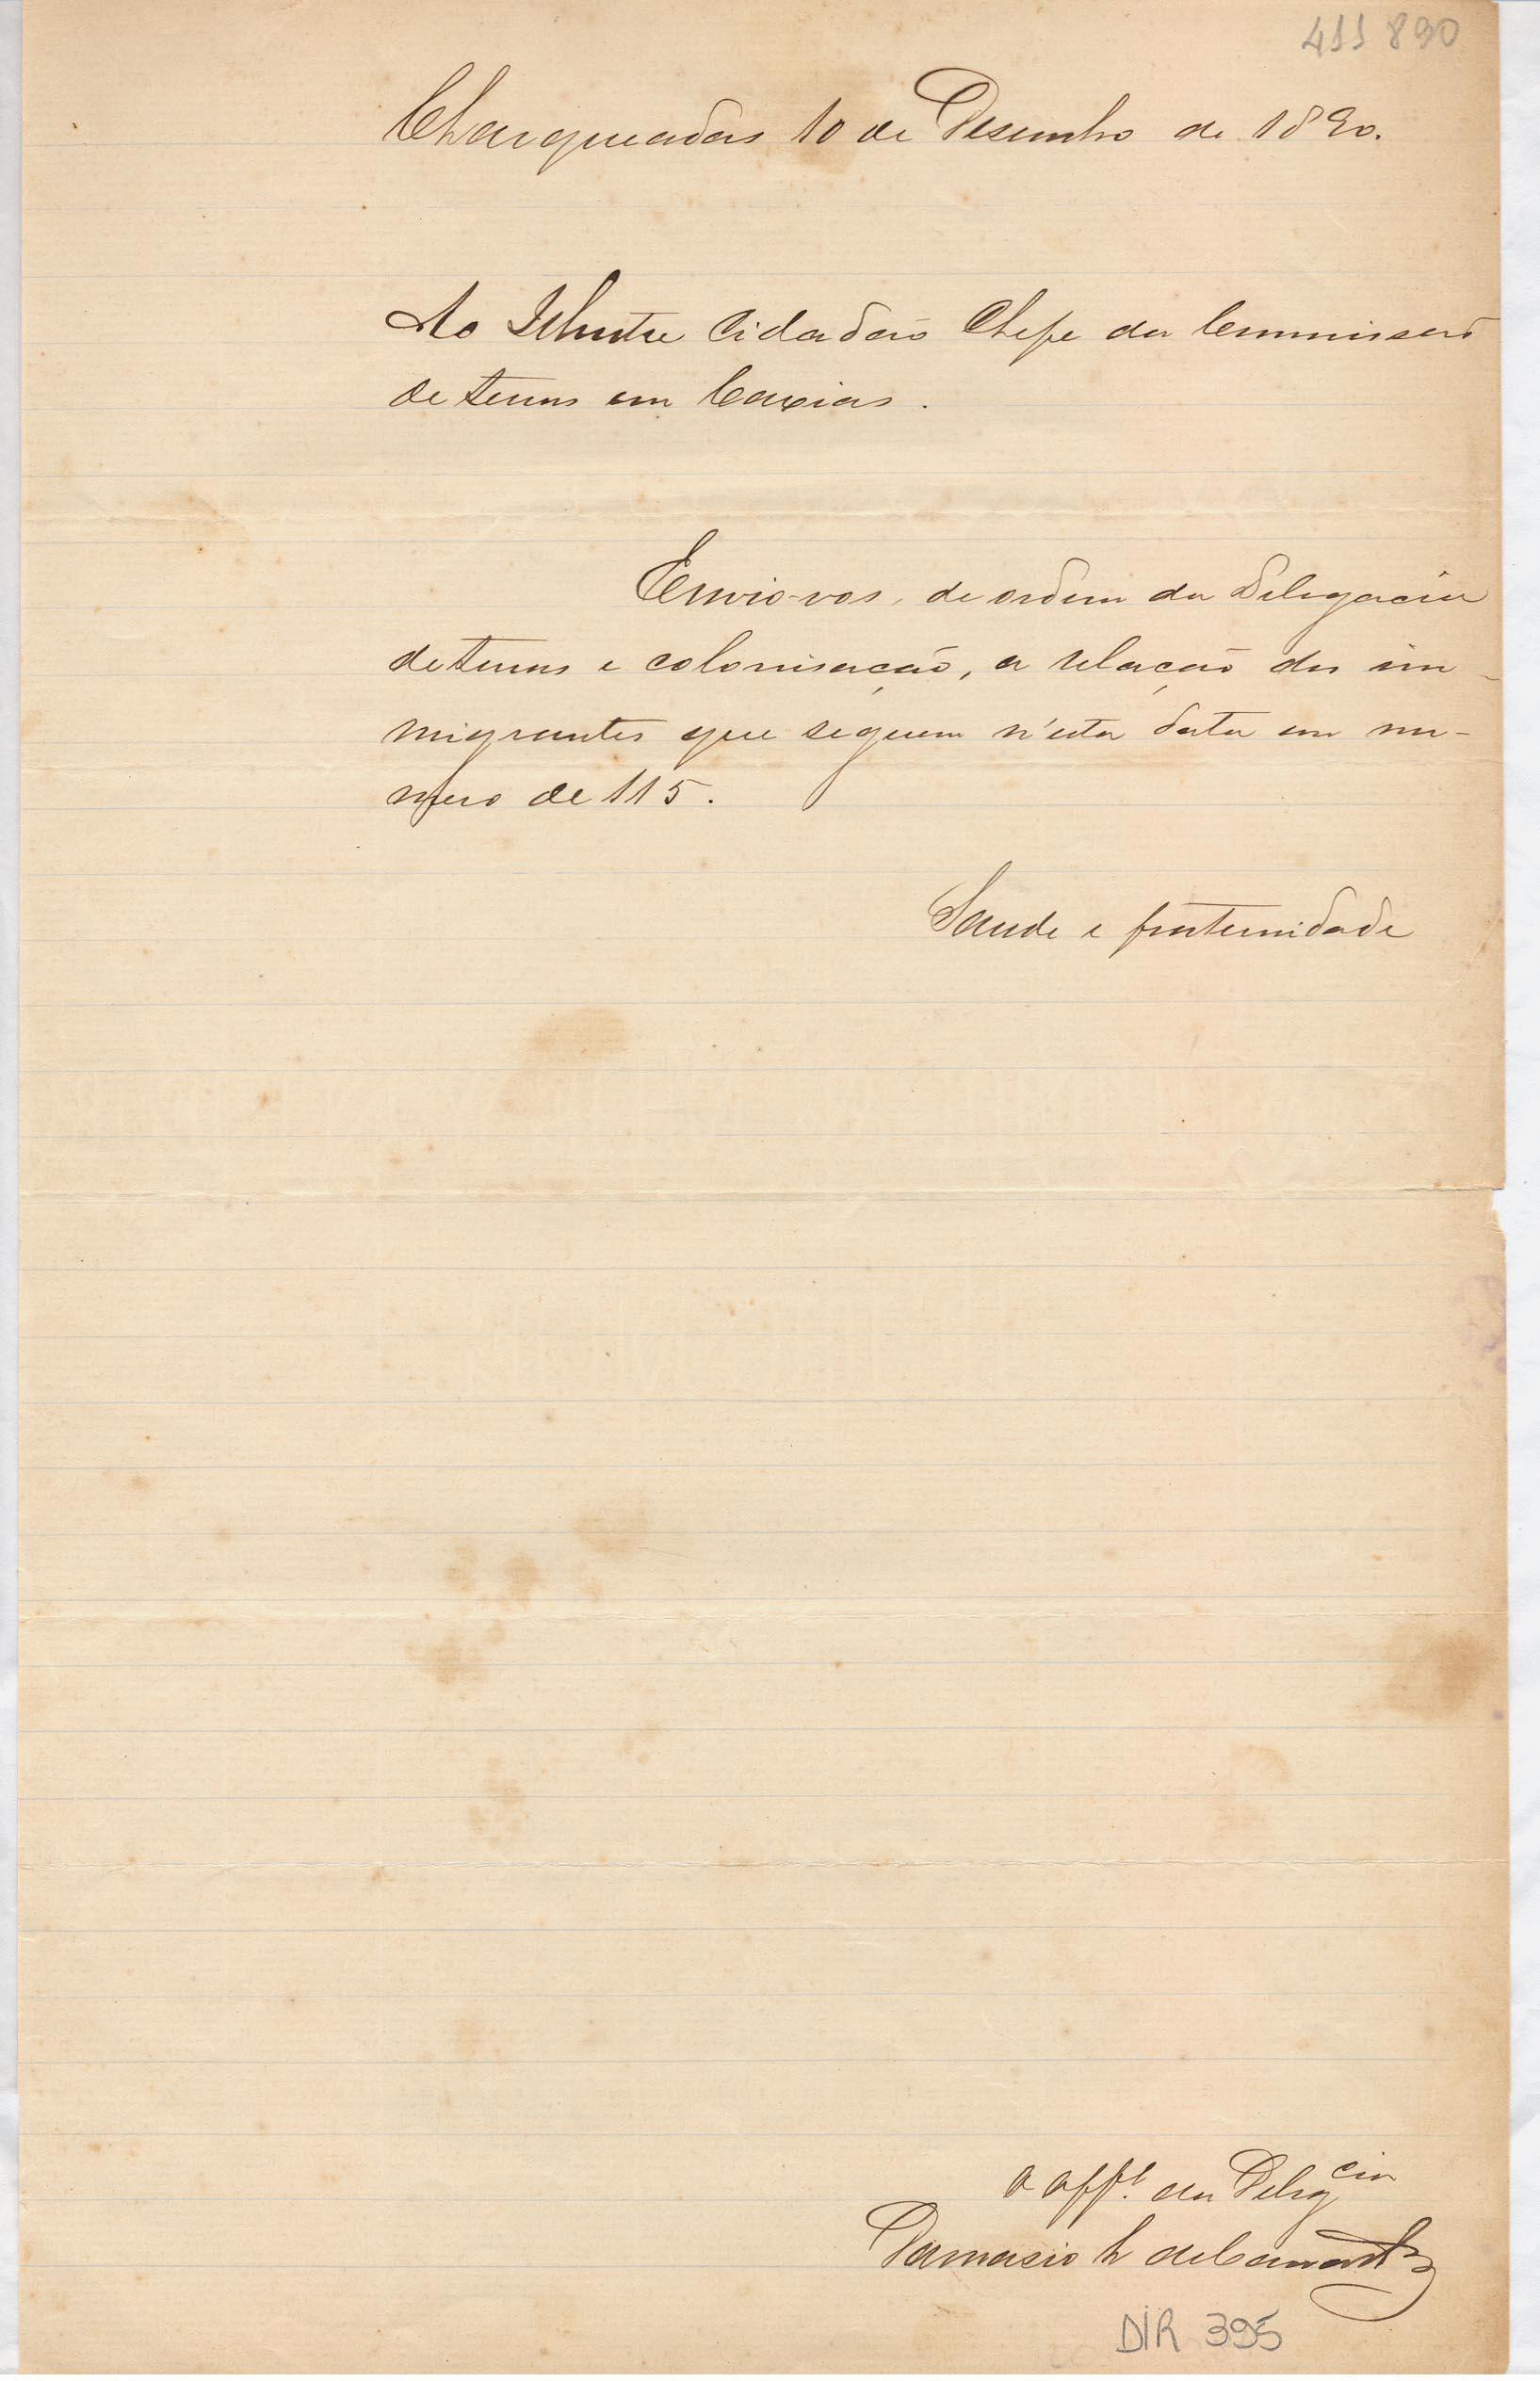 411 890
Charqueadas 10 de Desembro de 1890.
Ao Illustre Cidadão Chefe da Commissão
de terras em Caxias.
Envio-vos, de ordem da Delegacia
de terras e colonisação, a relação dos im-
migrantes que seguem n'esta data em nu-
mero de 115.
Saude e fraternidade
O offl. da Delegcia
Damasio de
DIR 395